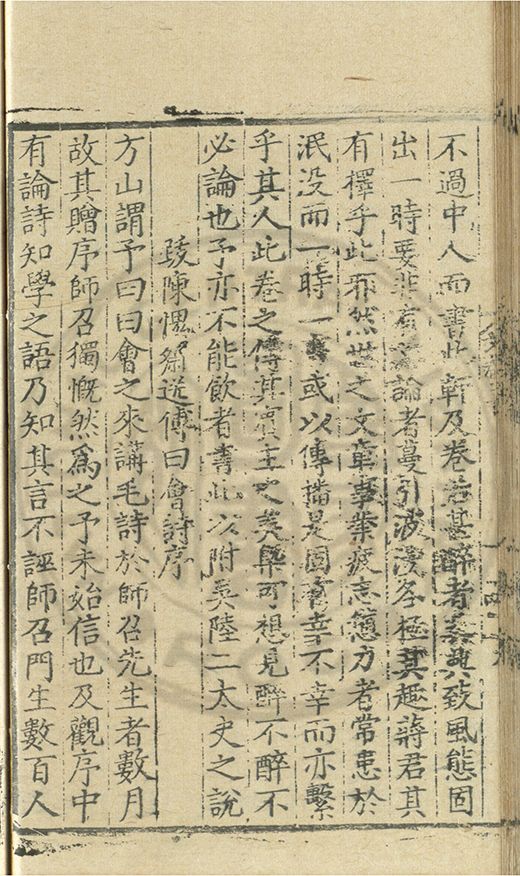 不過中人而書此軒及卷若甚醉者豪其致風態固
出一時要非論者蔓引波漫各極其趣蔣君其
有擇乎此邪然世之文章事業疲志憊力者常患於
泯没而一時一或以傳播是固有幸不幸而亦繫
乎其人此卷之傳其賓主之美槩可想見醉不醉不
必論也予亦不能飲者書此以附吳陸二太史之說
跋陳愧齋送傅曰會詩序
方山謂予曰曰會之來講毛詩於師召先生者數月
故其贈序師召獨慨然爲之予未始信也及觀序中
有論詩知學之語乃知其言不誣師召門生數百人